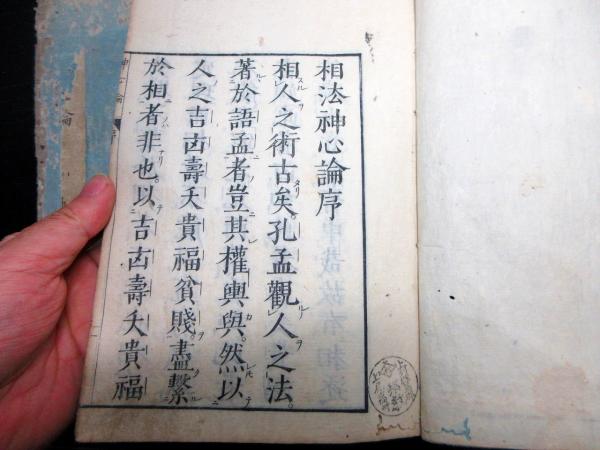 相法神心論序
相人之術古矣。孔孟觀人之法。
著於語孟者豈其權輿與。然以
人之吉凶壽夭貴福貧賤。盡繫
於相者非也。以吉凶壽夭貴福